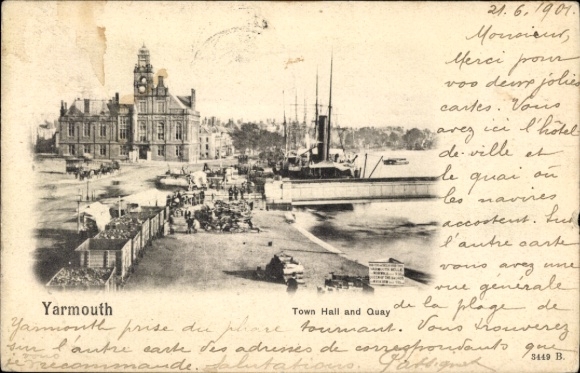 21.6.1901.
Monsieur,
Merci pour
vos deux jolies
cartes. Vous
avez ici l'hôtel
de-ville et
le quai où
les navires
accostent. Sur
l'autre carte
vous avez une
vue générale
de la plage de
Yarmouth
Town Hall and Quay
Yarmouth prise du phare tournant. Vous trouverez
sur l'autre carte des adresses de correspondants que
je vous recommande. Salutations.
3449 B.